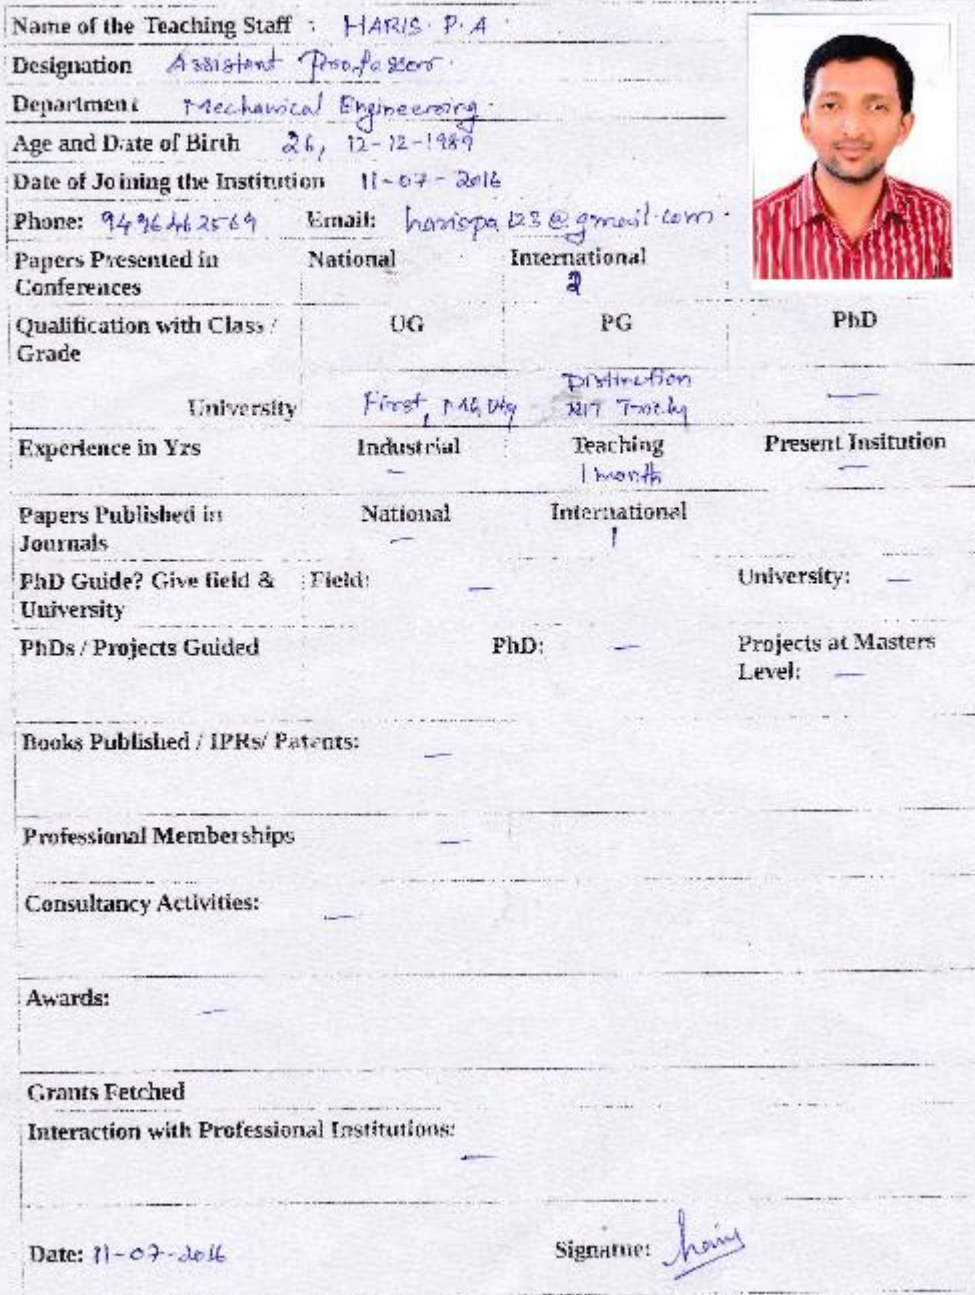 Name of the Teaching Staff : HARIS. P. A
Designation Assistant Professor.
Department Mechanical Engineering.
Age and Date of Birth 26, 12-12-1989
Date of Joining the Institution 11-07-2016
Phone: 9496462569 Email: harispa123@gmail.com.
Papers Presented in Conferences National International
2
Qualification with Class / Grade UG PG PhD
University First, MG Uty Distinction NIT Trichy —
Experience in Yrs Industrial Teaching Present Insitution
— 1 month —
Papers Published in Journals National International
— 1
PhD Guide? Give field & University Field: — University: —
PhDs / Projects Guided PhD: — Projects at Masters Level: —
Books Published / IPRs/ Patents: —
Professional Memberships —
Consultancy Activities: —
Awards: —
Grants Fetched
Interaction with Professional Institutions: —
Date: 11-07-2016 Signature: haris